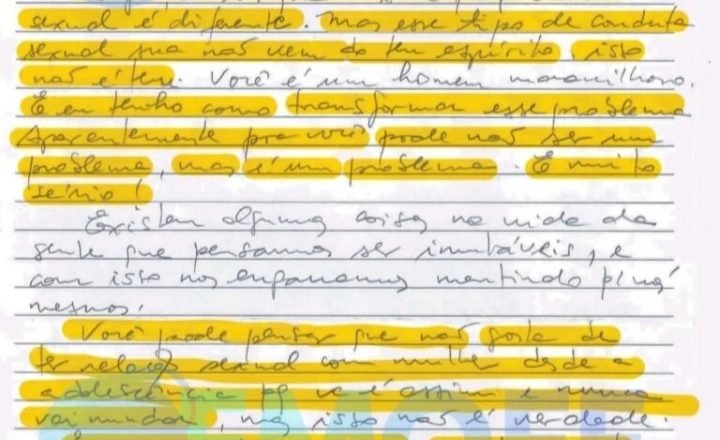 sexual é diferente. Mas esse tipo de conduta
sexual sua não vem do teu espírito, isso
não é teu. Você é um homem maravilhoso.
E eu tenho como transformar esse problema
Aparentemente pra você pode não ser um
problema, mas é um problema. É muito
sério!
Existem algumas coisas na vida da
gente que pensamos ser imutáveis, e
com isso nos enganamos mentindo p/ nós
mesmos.
Você pode pensar que não gosta de
ter relação sexual com mulher desde a
adolescência pq vc é assim e nunca
vai mudar, mas isso não é verdade.